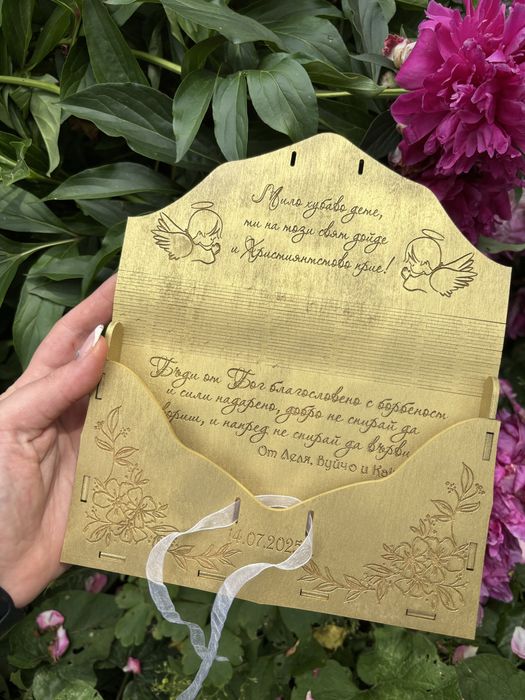 Мило хубаво дете,
ти на този свят дойде
и Християнтство прие!
Бъди от Бог благословено с борбеност
и сили надарено, добро не спирай да
вориш, и напред не спирай да върви
От Леля, Вуйчо и
14.07.2025